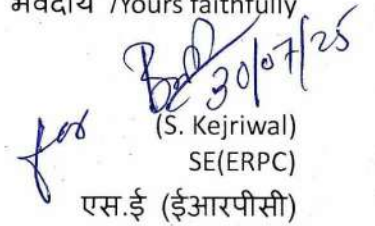 भवदीय /Yours faithfully
30/07/25
for
(S. Kejriwal)
SE(ERPC)
एस.ई (ईआरपीसी)